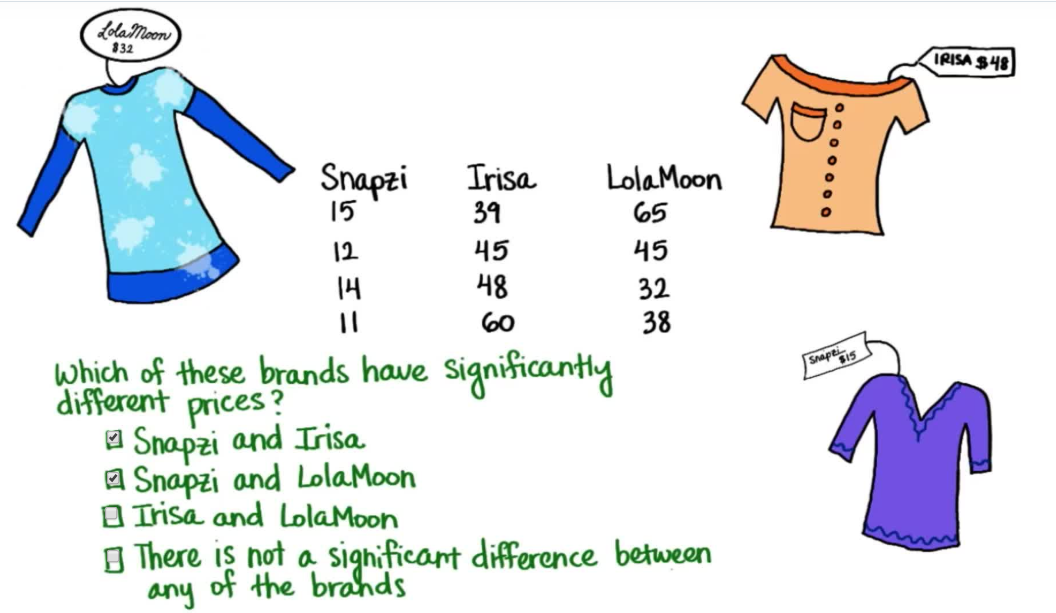 LolaMoon
$32
IRISA $48
Snapzi Irisa LolaMoon
15 39 65
12 45 45
14 48 32
11 60 38
Snapzi
$15
Which of these brands have significantly
different prices?
Snapzi and Irisa
Snapzi and LolaMoon
Irisa and LolaMoon
There is not a significant difference between
any of the brands